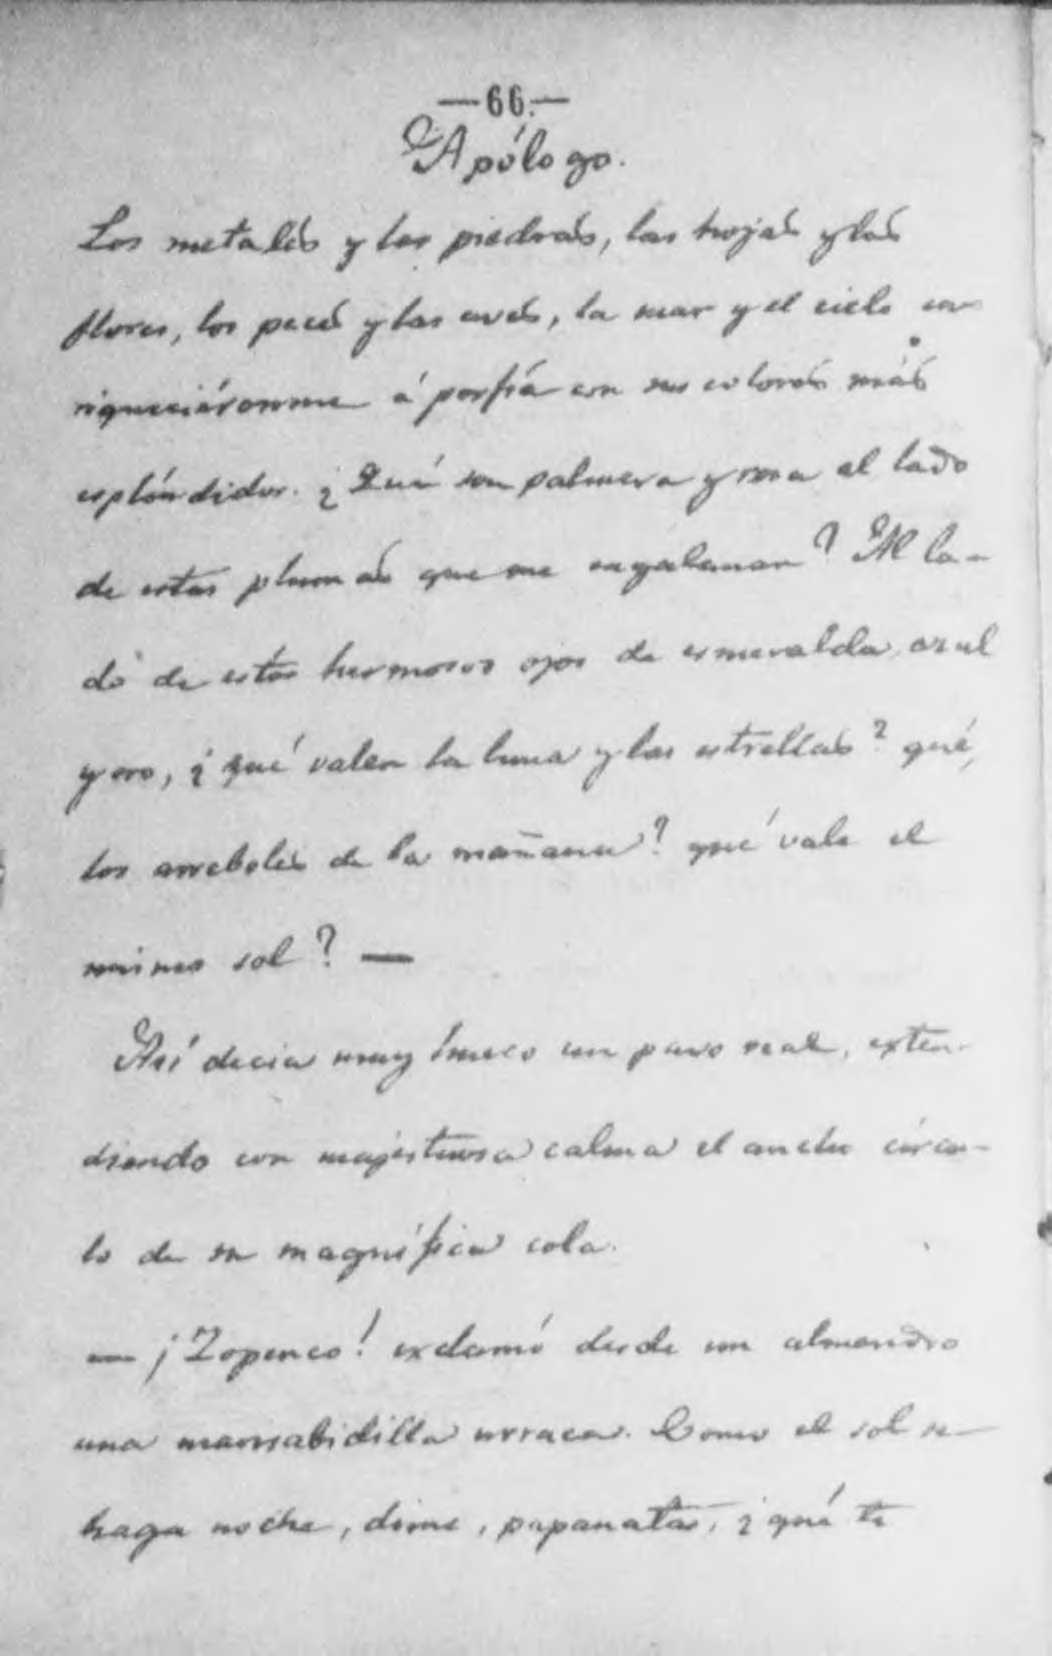 —66.—
Apólogo.
Los metales y las piedras, las hojas y las
flores, los peces y las aves, la mar y el cielo en-
riqueciéronme á porfía con sus colores más
espléndidos. ¿Qué son palmera y rosa al lado
de estas plumas que me engalanan? Al la-
do de estos hermosos ojos de esmeralda, azul
y oro, ¿qué valen la luna y las estrellas? qué,
los arreboles de la mañana? qué vale el
mismo sol? —
Así decia muy hueco un pavo real, exten-
diendo con majestuosa calma el ancho círcu-
lo de su magnífica cola.
— ¡Zopenco! exclamó desde un almendro
una marisabidilla urraca. Como el sol se
haga noche, dime, papanatas, ¿qué te